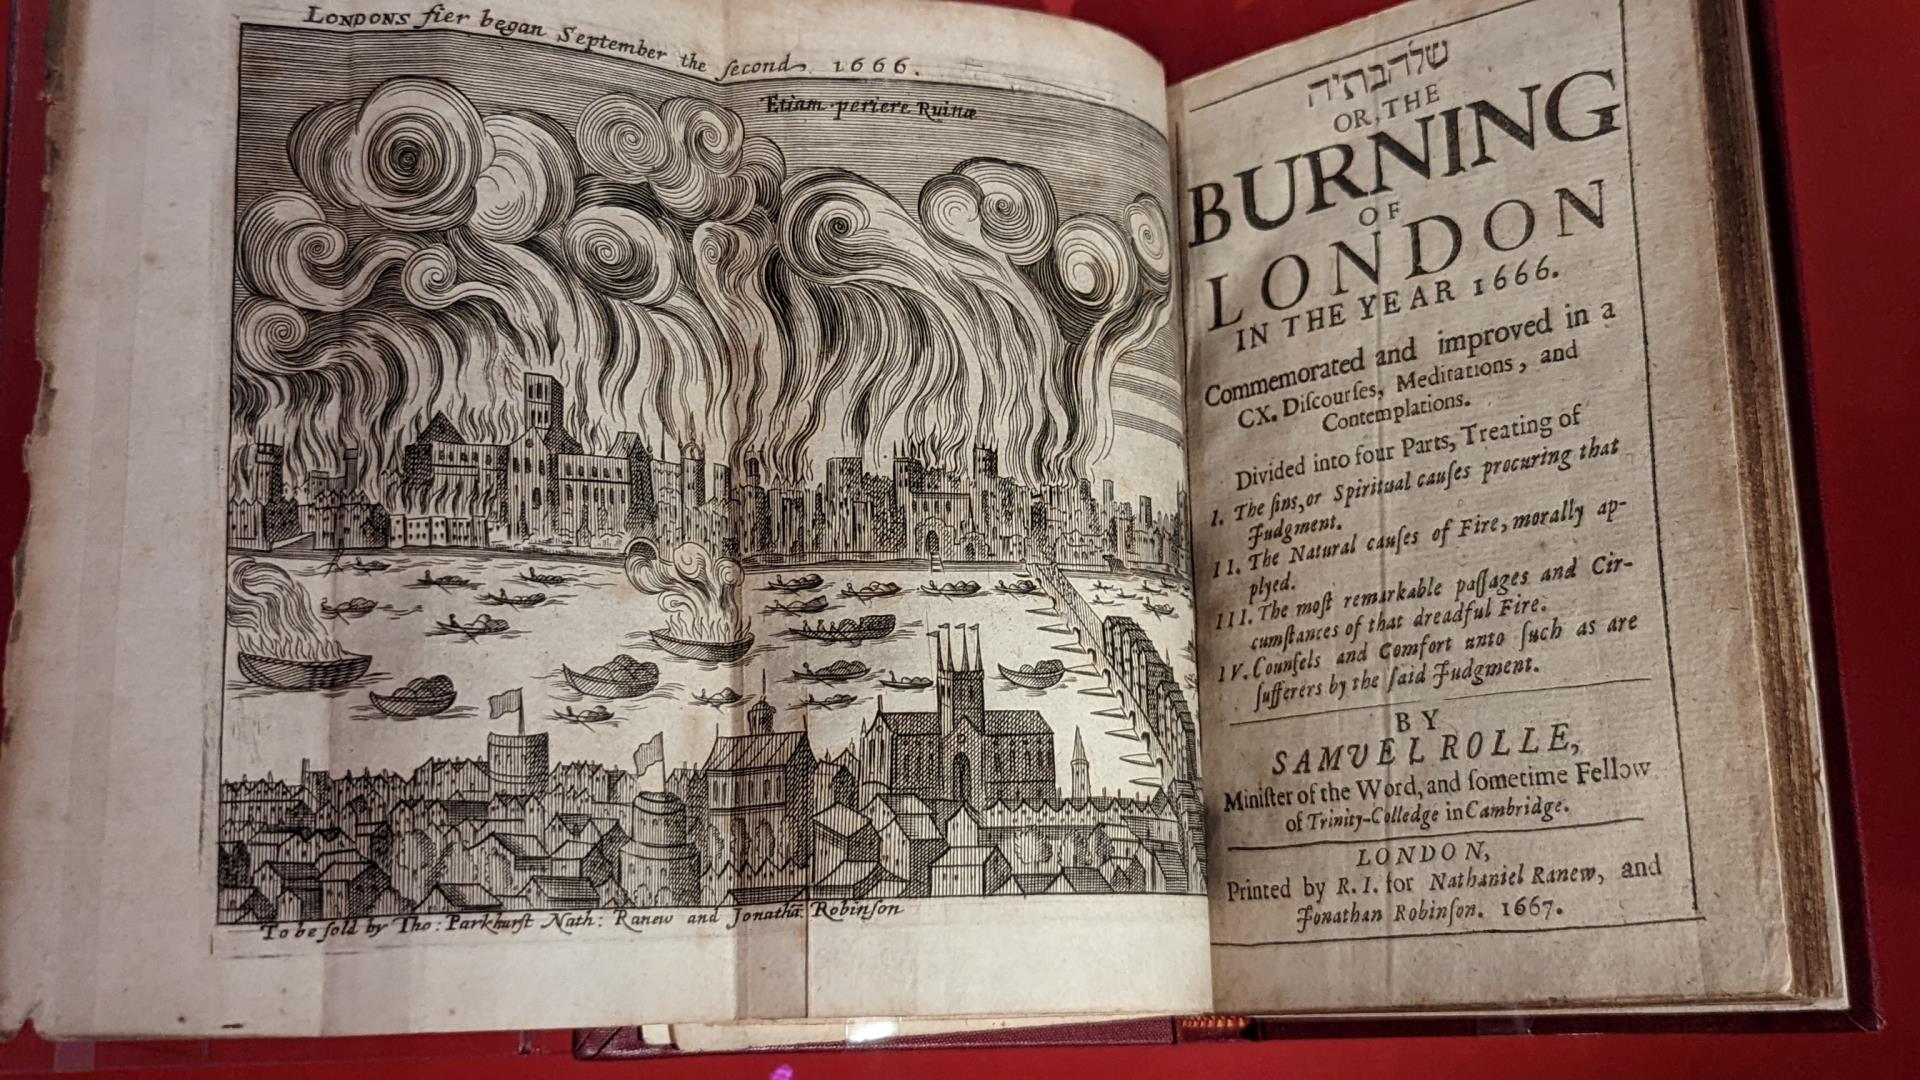 LONDONS fier began September the ſecond 1666.
Etiam periere Ruinæ
To be ſold by Tho: Parkhurſt Nath: Ranew and Jonathā Robinſon
שלהבתיה
OR, THE
BURNING
OF
LONDON
IN THE YEAR 1666.
Commemorated and improved in a
CX. Diſcourſes, Meditations, and
Contemplations.
Divided into four Parts, Treating of
I. The ſins, or Spiritual cauſes procuring that
Judgment.
II. The Natural cauſes of Fire, morally ap-
plyed.
III. The moſt remarkable paſſages and Cir-
cumſtances of that dreadful Fire.
IV. Counſels and Comfort unto ſuch as are
ſufferers by the ſaid Judgment.
BY
SAMUEL ROLLE,
Miniſter of the Word, and ſometime Fellow
of Trinity-Colledge in Cambridge.
LONDON,
Printed by R. I. for Nathaniel Ranew, and
Jonathan Robinſon. 1667.